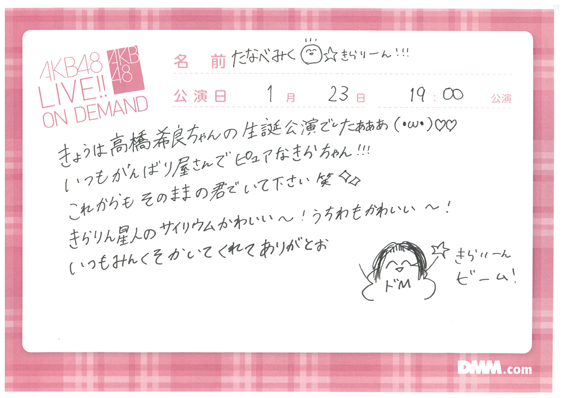 AKB48
LIVE!!
ON DEMAND
AKB
48
名 前 たなべみく ☆きらりーん!!!
公演日 1 月 23 日 19:00 公演
きょうは高橋希良ちゃんの生誕公演でしたぁぁぁ(・ω・)♡♡
いつもがんばり屋さんでピュアなきらちゃん!!!
これからもそのままの君でいて下さい笑
きらりん星人のサイリウムかわいい〜!うちわもかわいい〜!
いつもみんくそかいてくれてありがとお
ドM
きらりーん
ビーム!
DMM.com